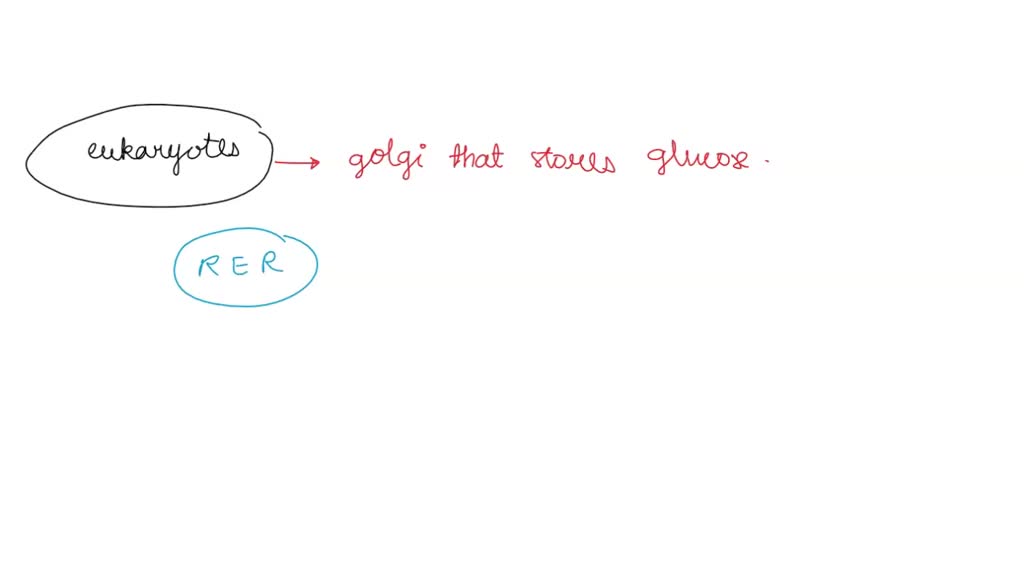 eukaryotes → golgi that stores glucose.
RER